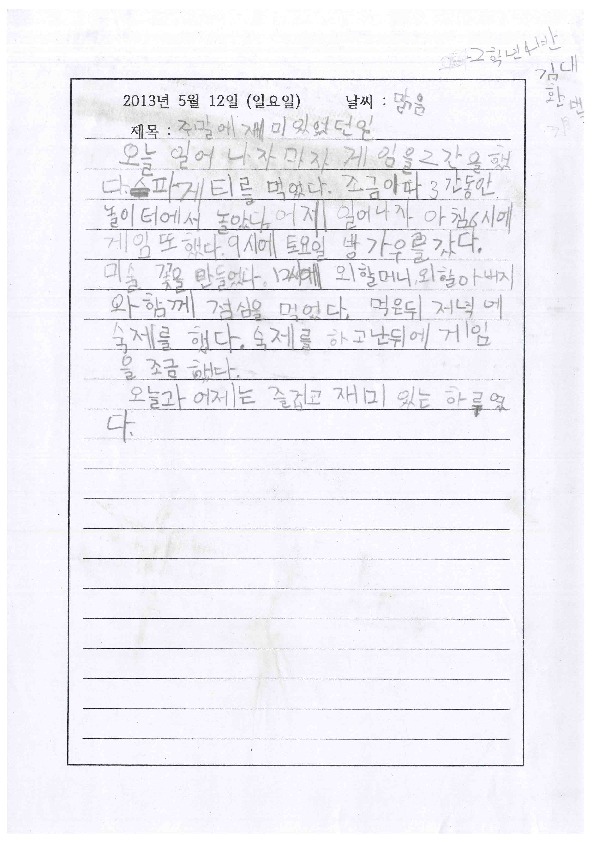 2학년 4반
김대
환
2013년 5월 12일 (일요일) 날씨 : 맑음
제목 : 주말에 재미있었던일
오늘 일어나자마자 게임을 2간을 했
다. 스파게티를 먹었다. 조금이따 3간동안
놀이터에서 놀았다. 어제 일어나자 아침 6시에
게임 또했다. 9시에 토요일 방가우를 갔다.
미술 꽃을 만들었다. 12시에 외할머니, 외할아버지
와 함께 점심을 먹었다. 먹은뒤 저녁에
숙제를 했다. 숙제를 하고난뒤에 게임
을 조금 했다.
오늘과 어제는 즐겁고 재미 있는 하루였
다.